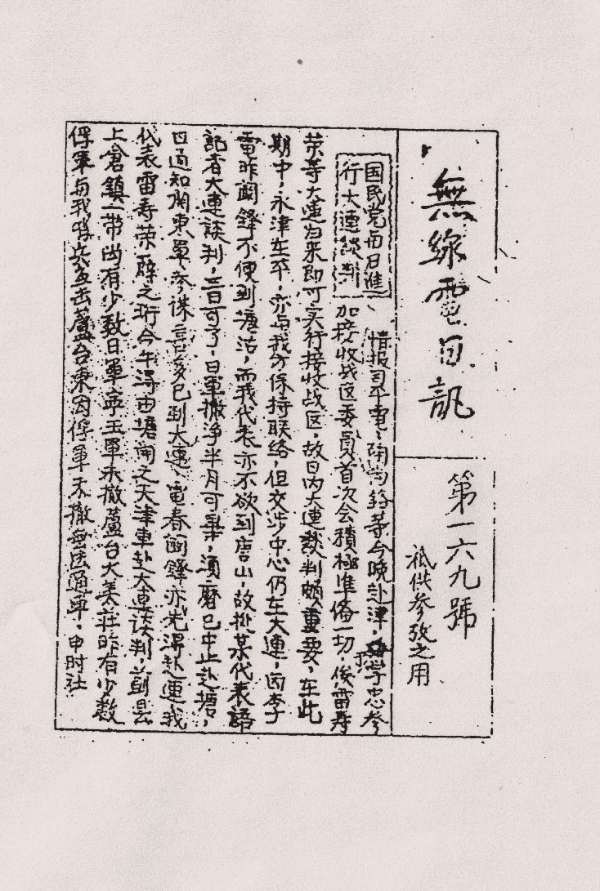 無線電日訊
第一六九號
祗供參攷之用
国民党与日進
行大連談判
情报司平電：陶尚銘等今晚赴津，于学忠参
加接收战区委員首次会積極準备一切，俟雷寿
荣等大連归来即可实行接收战区，故日内大連談判頗重要，在此
期中，永津在平，亦与我方保持联络，但交涉中心仍在大連，因李
電昨開鋒不便到塘沽，而我代表亦不欲到唐山，故批某代表語
記者大連談判，三日可了，日軍撤净半月可畢，須磨已中止赴塘，
日通知関東軍参谋喜多已到大連，電春開鋒亦先得赴連，我
代表雷寿荣殷之珩今午得由塘闻之天津車赴大連談判，薊县
上倉鎮一带尚有少数日軍，李王軍未撤蘆台大美庄昨有少数
俘軍与我騎兵互击蘆台東因俘軍未撤無法通車，申时社